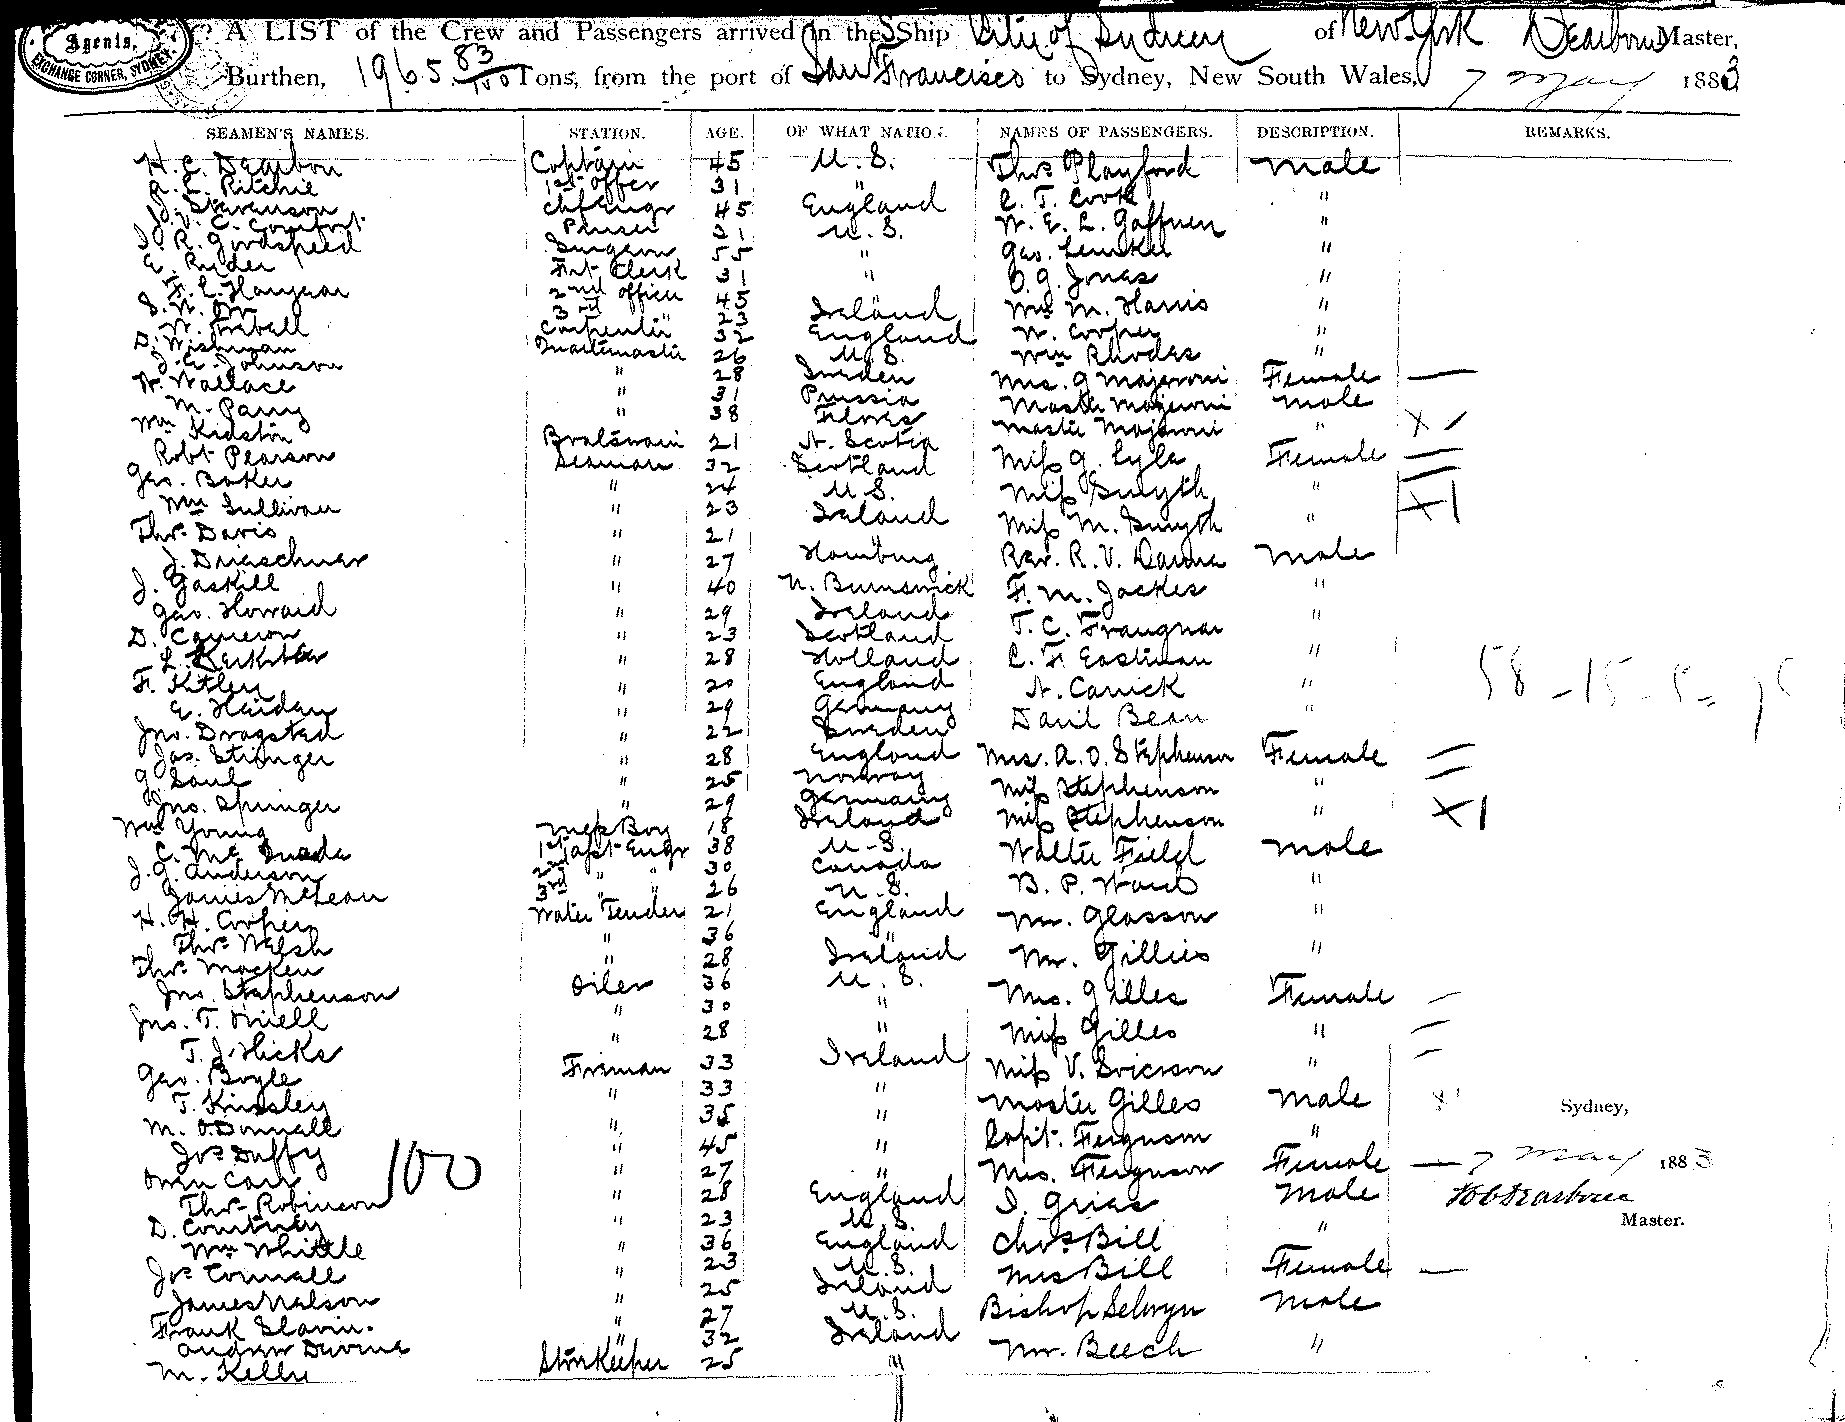 Agents,
EXCHANGE CORNER, SYDNEY
A LIST of the Crew and Passengers arrived in the Ship City of Sydney of New York Dearborn Master,
Burthen, 1965 83/100 Tons, from the port of San Francisco to Sydney, New South Wales, 7 May 1883
SEAMEN'S NAMES. STATION. AGE. OF WHAT NATION. NAMES OF PASSENGERS. DESCRIPTION. REMARKS.
H. C. Dearbon Captain 45 U. S. Thos Playford Male
R. E. Ritchie 1st offer 31 " C. T. Cook "
J. Stevenson chf Engr 45 England W. E. L. Gaffney "
J. V. C. Comfort Purser 31 U. S. Geo.
J. R. Goodspeed Surgeon 55 " O. G. Jones "
E. Ryder Frt Clerk 31 " Mr M. Harris "
F. C. 2nd officer 45 Ireland W. Cooper "
S. N. Orr 3rd " 23 England Wm Rhodes "
W. Carpenter 32 U. S. Mrs. G Majeroni Female
D. Wishman Quartermaster 26 Sweden Master Majeroni Male
J. E. Johnson " 28 Prussia Master Majeroni "
W. Wallace " 31 Flores Miss G. Lyle Female
M. Parry " 38 N. Scotia Miss Smyth "
Wm Kidston Boatswain 21 Scotland Miss M. Smyth "
Robt Pearson Seaman 32 U. S. Rev. R. V. Danna Male
Geo. Baker " 24 Ireland F. M. Jackes "
Wm Sullivan " 23 Hamburg T. C.
Thos Davis " 21 N. Brunswick C. F. Eastman "
J. Drieschner " 27 Ireland N. Carrick "
J. Gaskill " 40 Scotland David Bean "
Geo. Howard " 29 Holland Mrs. A. O. Stephenson Female
D. Cameron " 23 England Miss Stephenson "
L. " 28 Germany Miss Stephenson "
F. Kitley " 20 Sweden Walter Field Male
E. Heiden " 29 England B. P. Ward "
Jno. Dragsted " 22 Norway Mr. Glasson "
Jas. Stringer " 28 Germany Mr. Gillies "
G. Saul " 25 Ireland Mrs. Gilles Female
Jno. Springer " 29 U. S. Miss Gilles "
Wm Young Mess Boy 18 Canada Miss V.
C. Mc 1st asst Engr 38 U. S. Master Gilles Male
J. G. Anderson 2nd " " 30 England Capt. Ferguson "
James McLean 3rd " " 26 " Mrs. Ferguson Female
H. H. Cooper Water Tender 21 Ireland Male
Thos Welsh " 36 U. S. Chas Bill "
Thos Macken " 28 " Mrs Bill Female
Jno. Stephenson Oiler 36 " Bishop Selwyn Male
Jno. T. " 30 Ireland Mr. Beech "
T. J. Hicks " 28 "
Geo. Boyle Fireman 33 "
T. Kinsley " 33 "
M. O.Donnall " 35 "
Jos Duffy " 45 England
Owen Carr " 27 U. S.
Thos Robinson " 28 England
D. Courtney " 23 U. S.
Wm Whittle " 36 Ireland
Jos Connall " 23 U. S.
James Nalson " 25 Ireland
Frank Slavin. " 27 "
Andrew Devine " 32
M. Kelly Storekeeper 25
100
58 - 15 - 5 =
Sydney,
7 May 1883
H C Dearborn
Master.